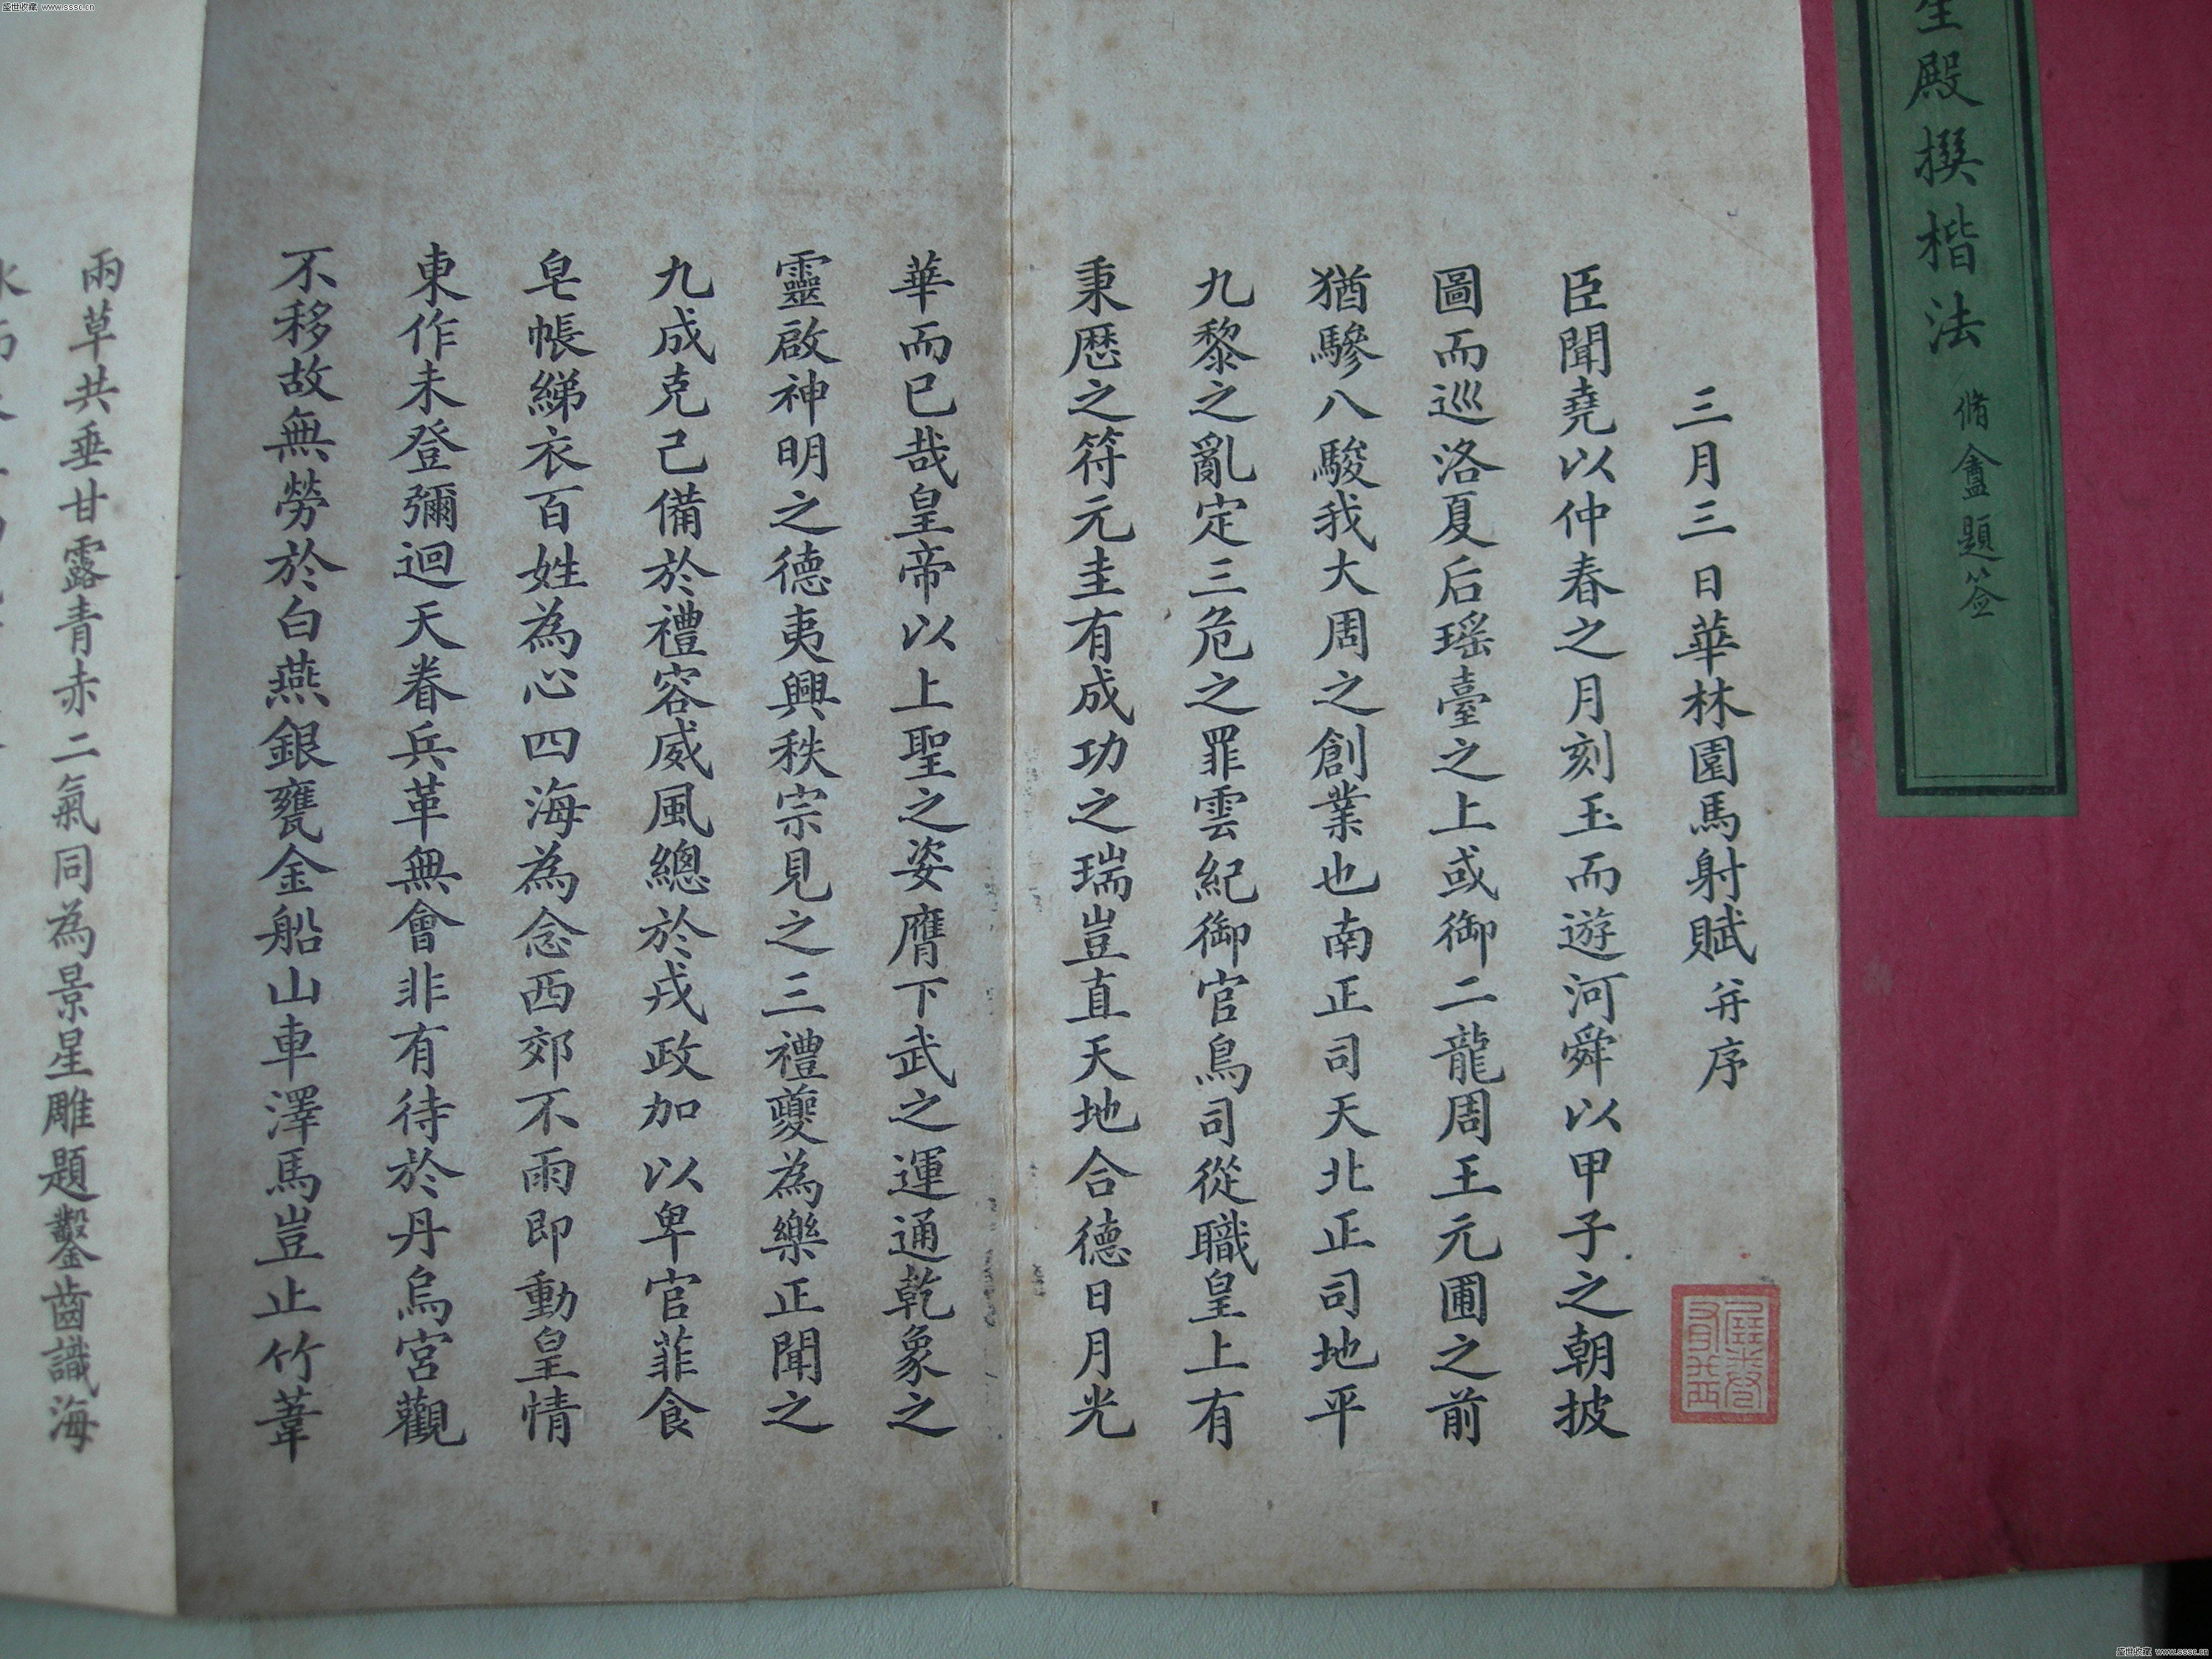 盛世收藏 www.sssc.cn
殿撰楷法 脩盦題签
三月三日華林園馬射賦 并序
臣聞堯以仲春之月刻玉而遊河舜以甲子之朝披
圖而巡洛夏后瑤臺之上或御二龍周王元圃之前
猶驂八駿我大周之創業也南正司天北正司地平
九黎之亂定三危之罪雲紀御官鳥司從職皇上有
秉歷之符元圭有成功之瑞豈直天地合德日月光
華而已哉皇帝以上聖之姿膺下武之運通乾象之
靈啟神明之德夷興秩宗見之三禮夔為樂正聞之
九成克己備於禮容威風總於戎政加以卑官菲食
皂帳綈衣百姓為心四海為念西郊不雨即動皇情
東作未登彌迴天眷兵革無會非有待於丹烏宮觀
不移故無勞於白燕銀甕金船山車澤馬豈止竹葦
兩草共垂甘露青赤二氣同為景星雕題鑿齒識海
盛世收藏 www.sssc.cn